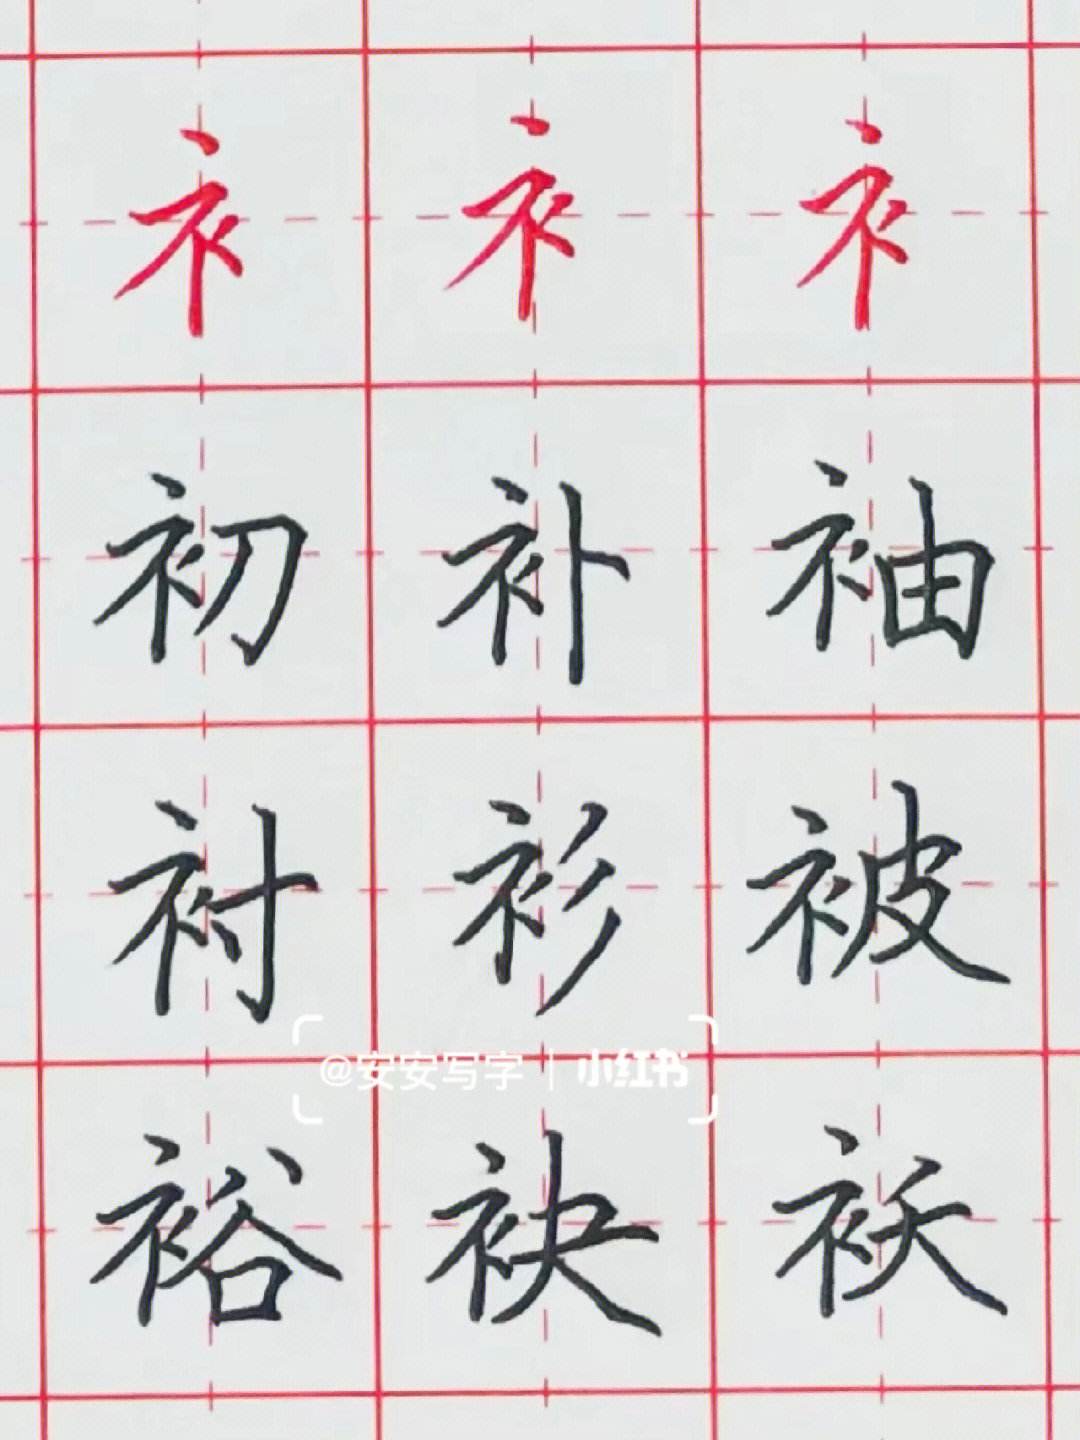 衤 衤 衤
初 补 袖
衬 衫 被
@安安写字 | 小红书
裕 袂 袄